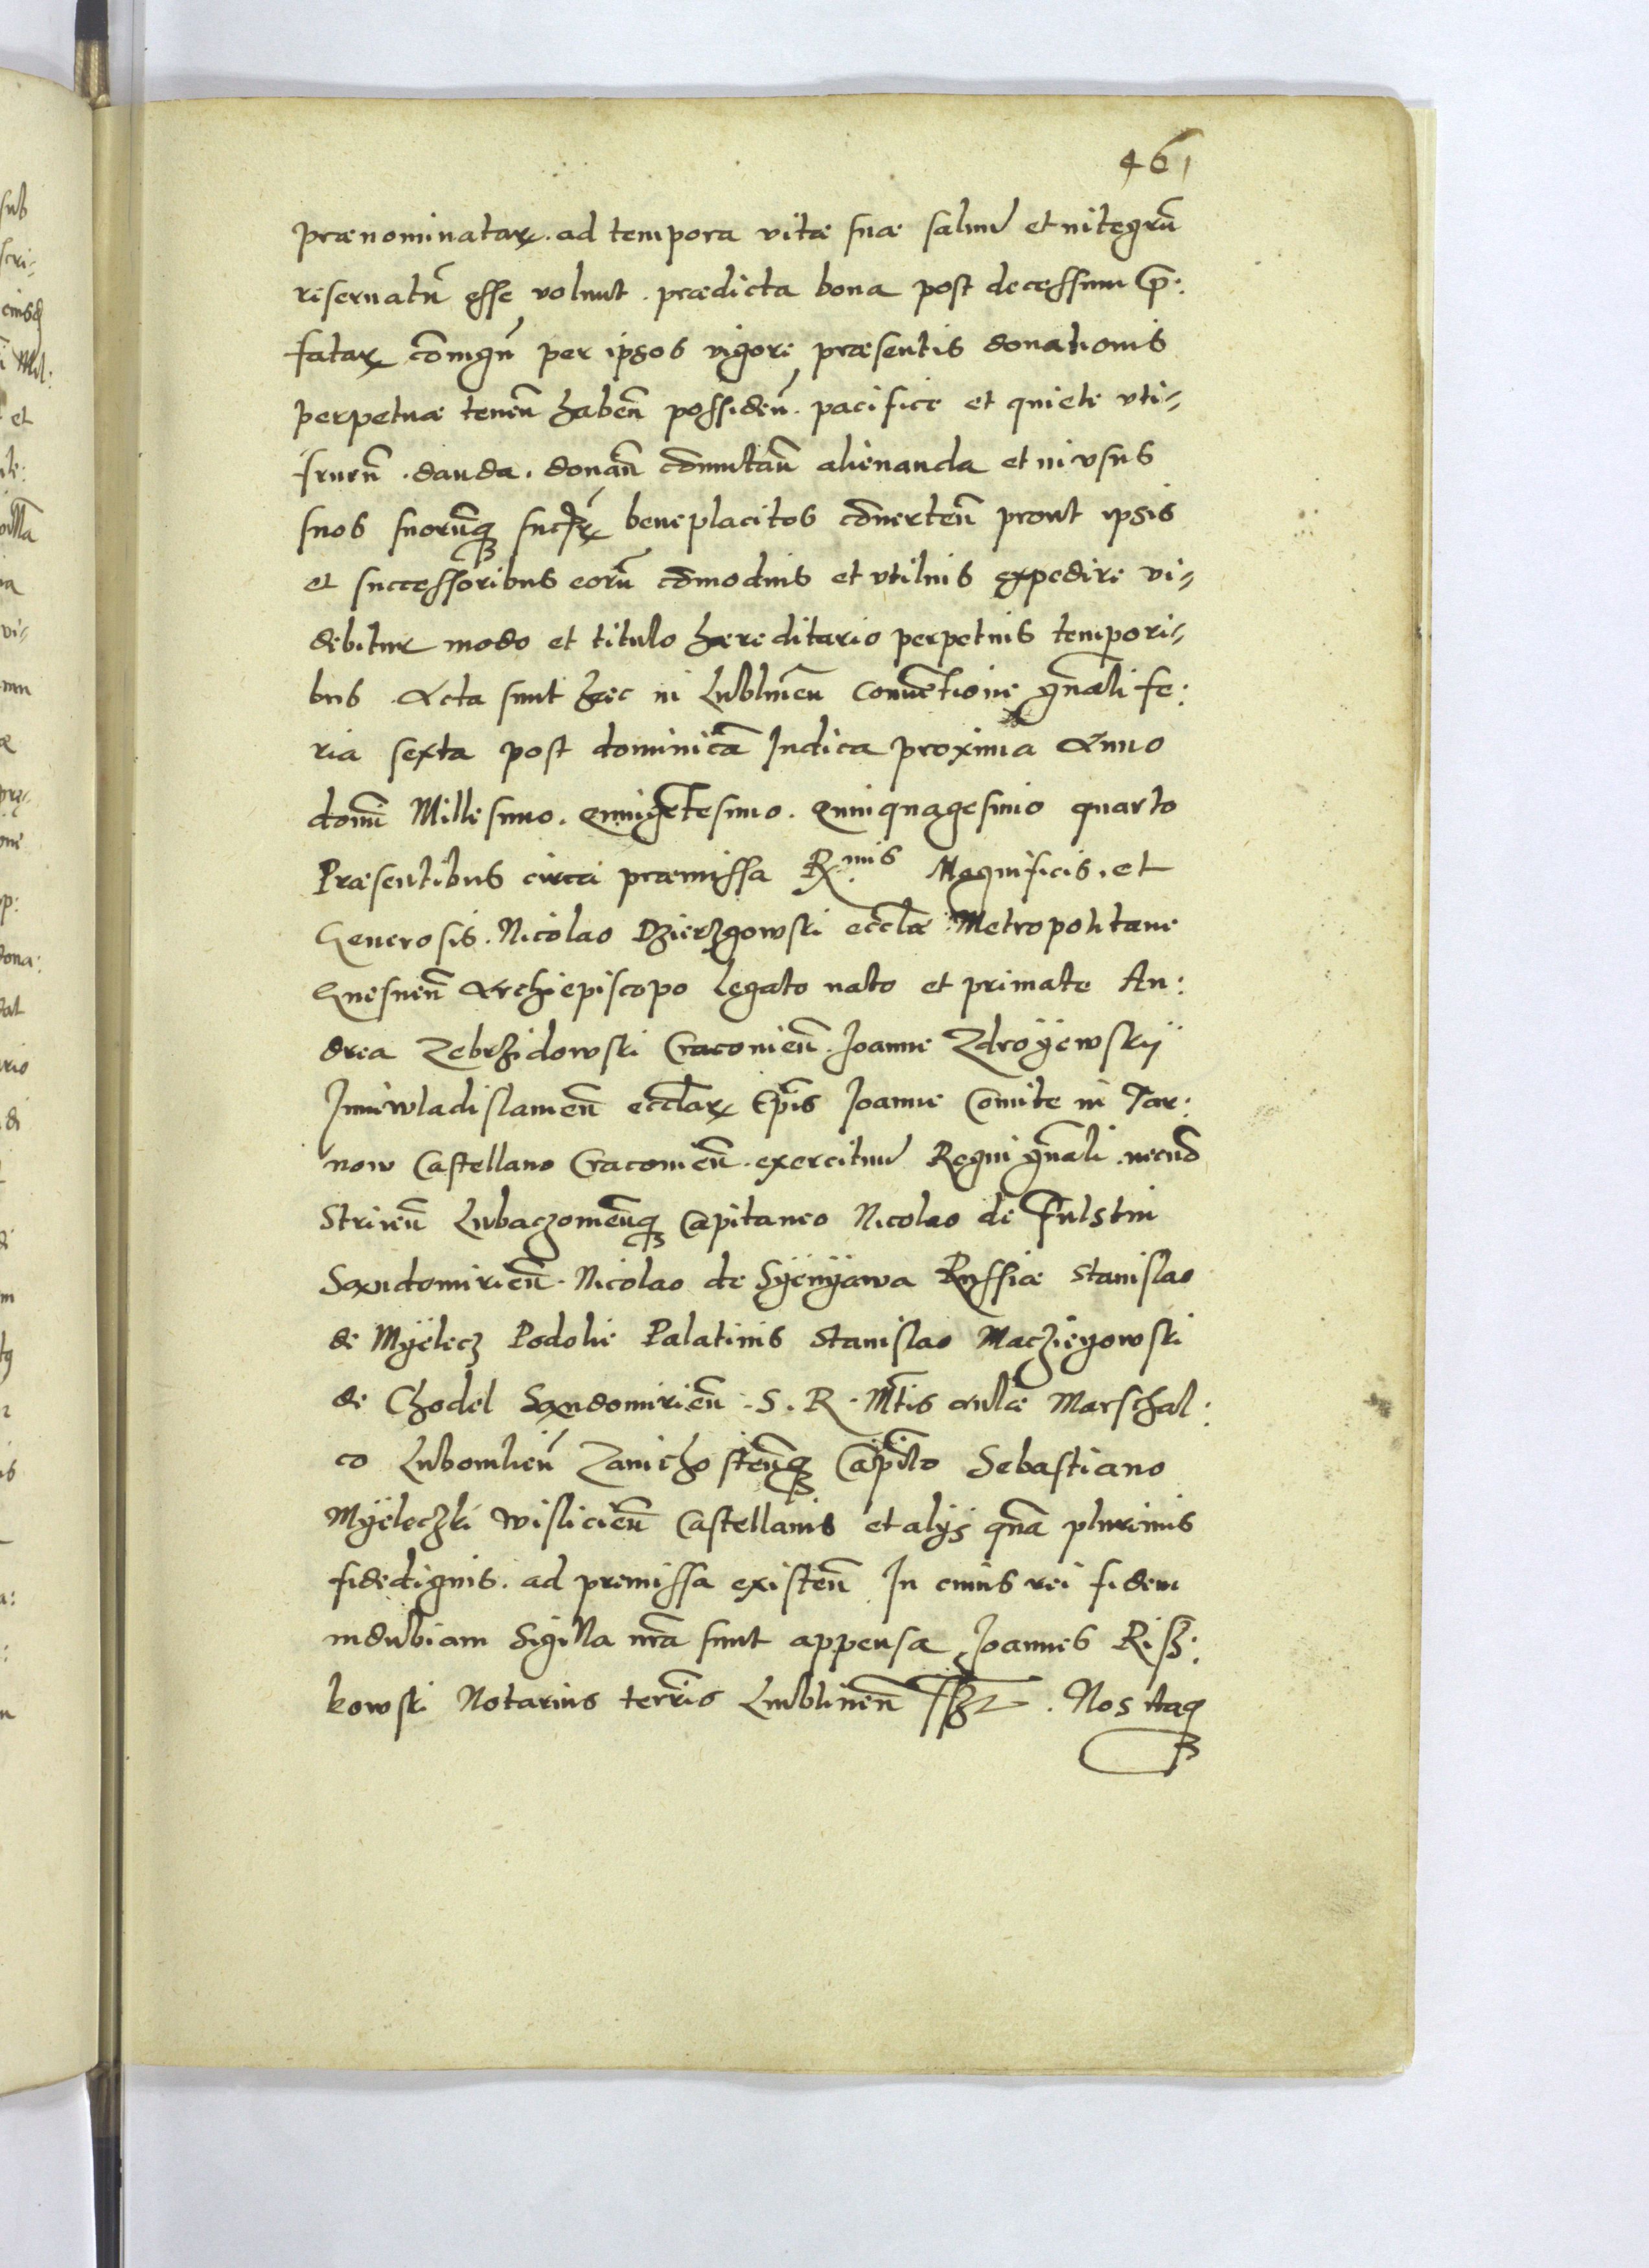 461
prænominatarꝝ. ad tempora vitæ suæ saluũ et integrũ
reseruatũ esse volunt. prædicta bona post decessum p̄:
fatarꝝ cõiugũ per ipsos vigore præsentis donationis
perpetuæ teneñ habeñ possideñ. pacifice et quiete vti=
frueñ. danda. donañ cõmutañ alienanda et in vsus
suos suorũqꝫ succꝝ beneplacitos cõuerteñ prout ipsis
et successoribus eorũ cõmodius et vtilius expedire vi=
debitur modo et titulo hæreditario perpetuis tempori=
bus. Acta sunt hæc in Lubliñeñ Conuẽtione gñali fe:
ria sexta post dominicã Iudica proxima Anno
domĩ Millesimo. Quingẽtesimo. Quinquagesimo quarto
Præsentibus circa præmissa R.mis Magnificis. et
Generosis. Nicolao Dzierzgowski eccl̃æ Metropolitane
Gnesneñ Archiepiscopo legato nato et primate An:
drea Zebrzidowski Cracouieñ. Joanne Zdroyewskij
Iuniwladislauieñ eccl̃arꝝ Ep̃is Joanne Comite in Tar:
now Castellano Cracouieñ. exercituũ Regni gñali. necnõ
Strieñ Lubaczouieñqꝫ Capitaneo Nicolao de Fulstin
Sandomirieñ. Nicolao de Syenyawa Russiæ Stanislao
de Myelecz Podolie Palatinis Stanislao Macziegowski
de Chodel Sandomirieñ. S. R. M̃tis aulæ Marschal:
co Lubomlieñ Zauichosteñqꝫ Cap̃ito Sebastiano
Myeleczki Wislicieñ Castellanis et alijs qñã plurimis
fidedignis. ad premissa existeñ In cuius rei fidem
indubiam Sigilla nr̃a sunt appensa Joannes Risz:
kowski Notarius terr̃is Lublineñ sszt. Nos itaqꝫ